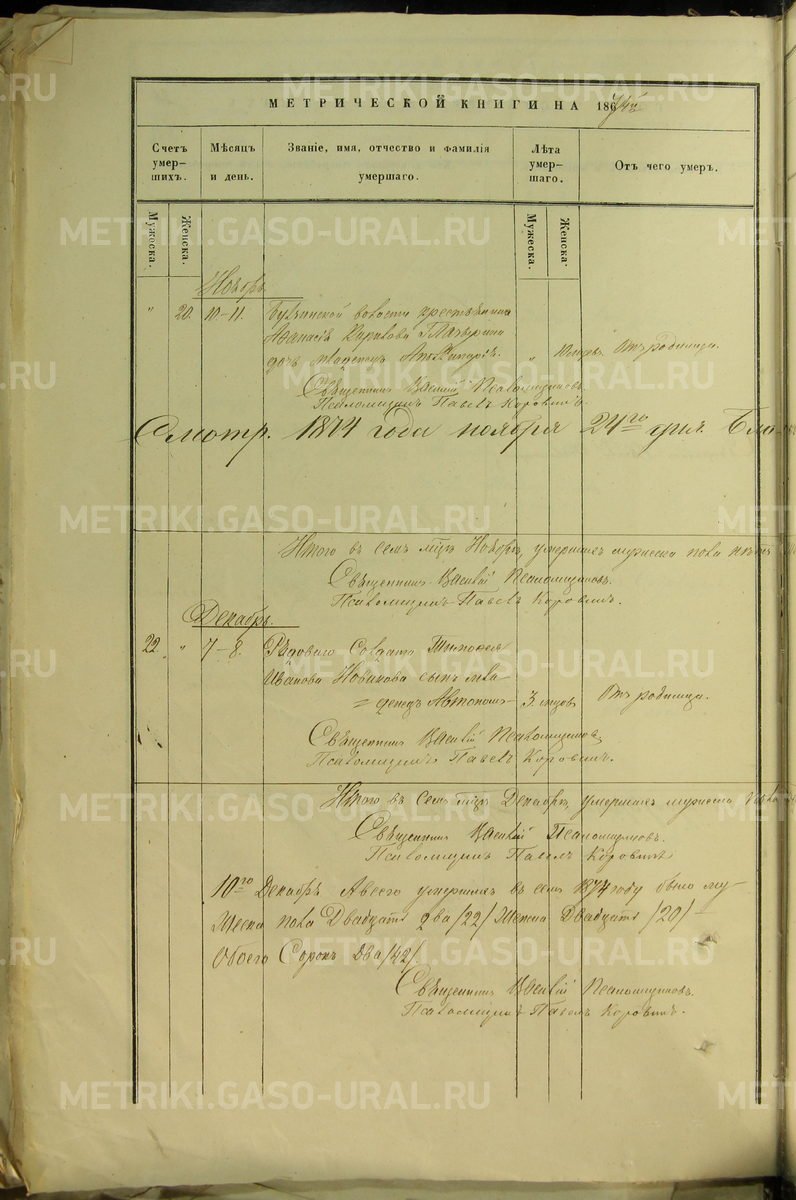 МЕТРИЧЕСКОЙ КНИГИ НА 1874й
Счетъ умер-шихъ.
Мѣсяцъ и день.
Званіе, имя, отчество и фамилія умершаго.
Лѣта умер-шаго.
Отъ чего умеръ.
Мужеска.
Женска.
Мужеска.
Женска.
Ноябрь.
" 20. 10.-11. волости крестьянина
Афанасія
дочь младенецъ " Отъ родимца.
Священникъ Василій
Псаломщикъ Павелъ Коровинъ.
Смотр. 1874 года ноября 24го дня.
Итого въ семъ мцѣ Ноябрѣ, умершихъ мужеска пола
Священникъ Василій
Псаломщикъ Павелъ Коровинъ.
Декабрь.
22. " 7-8. Рядоваго Солдата
Иванова Новикова сынъ мла
=денецъ Автономъ 3. мцов Отъ родимца.
Священникъ Василій
Псаломщикъ Павелъ Коровинъ.
Итого въ семъ мцѣ Декабрѣ, умершихъ мужеска
Священникъ Василій
Псаломщикъ Павелъ Коровинъ
10го Декабрѣ А всего умершихъ въ семъ 1874 году было му-
жеска пола Двадцать два /22/ Женска Двадцать /20/
Обоего Сорокъ два /42/.
Священникъ Василій
Псаломщикъ Павелъ Коровинъ.
METRIKI.GASO-URAL.RU